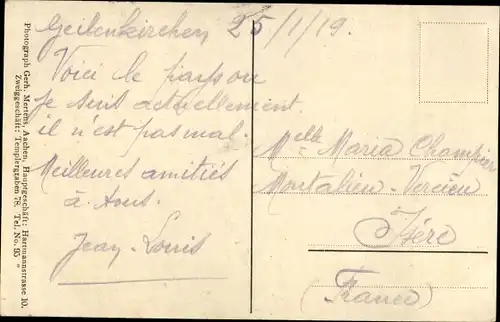 Geilenkirchen 25/1/19.
Voici le pays ou
je suis actuellement.
il n'est pas mal.
Meilleures amitiés
à tous.
Jean-Louis
Melle Maria Champier
Montalieu-Vercieu
Isére
(France)
Photograph Gerh. Mertens, Aachen, Hauptgeschäft: Hartmannstrasse 10,
Zweiggeschäft: Templergraben 78. Tel. No. 95